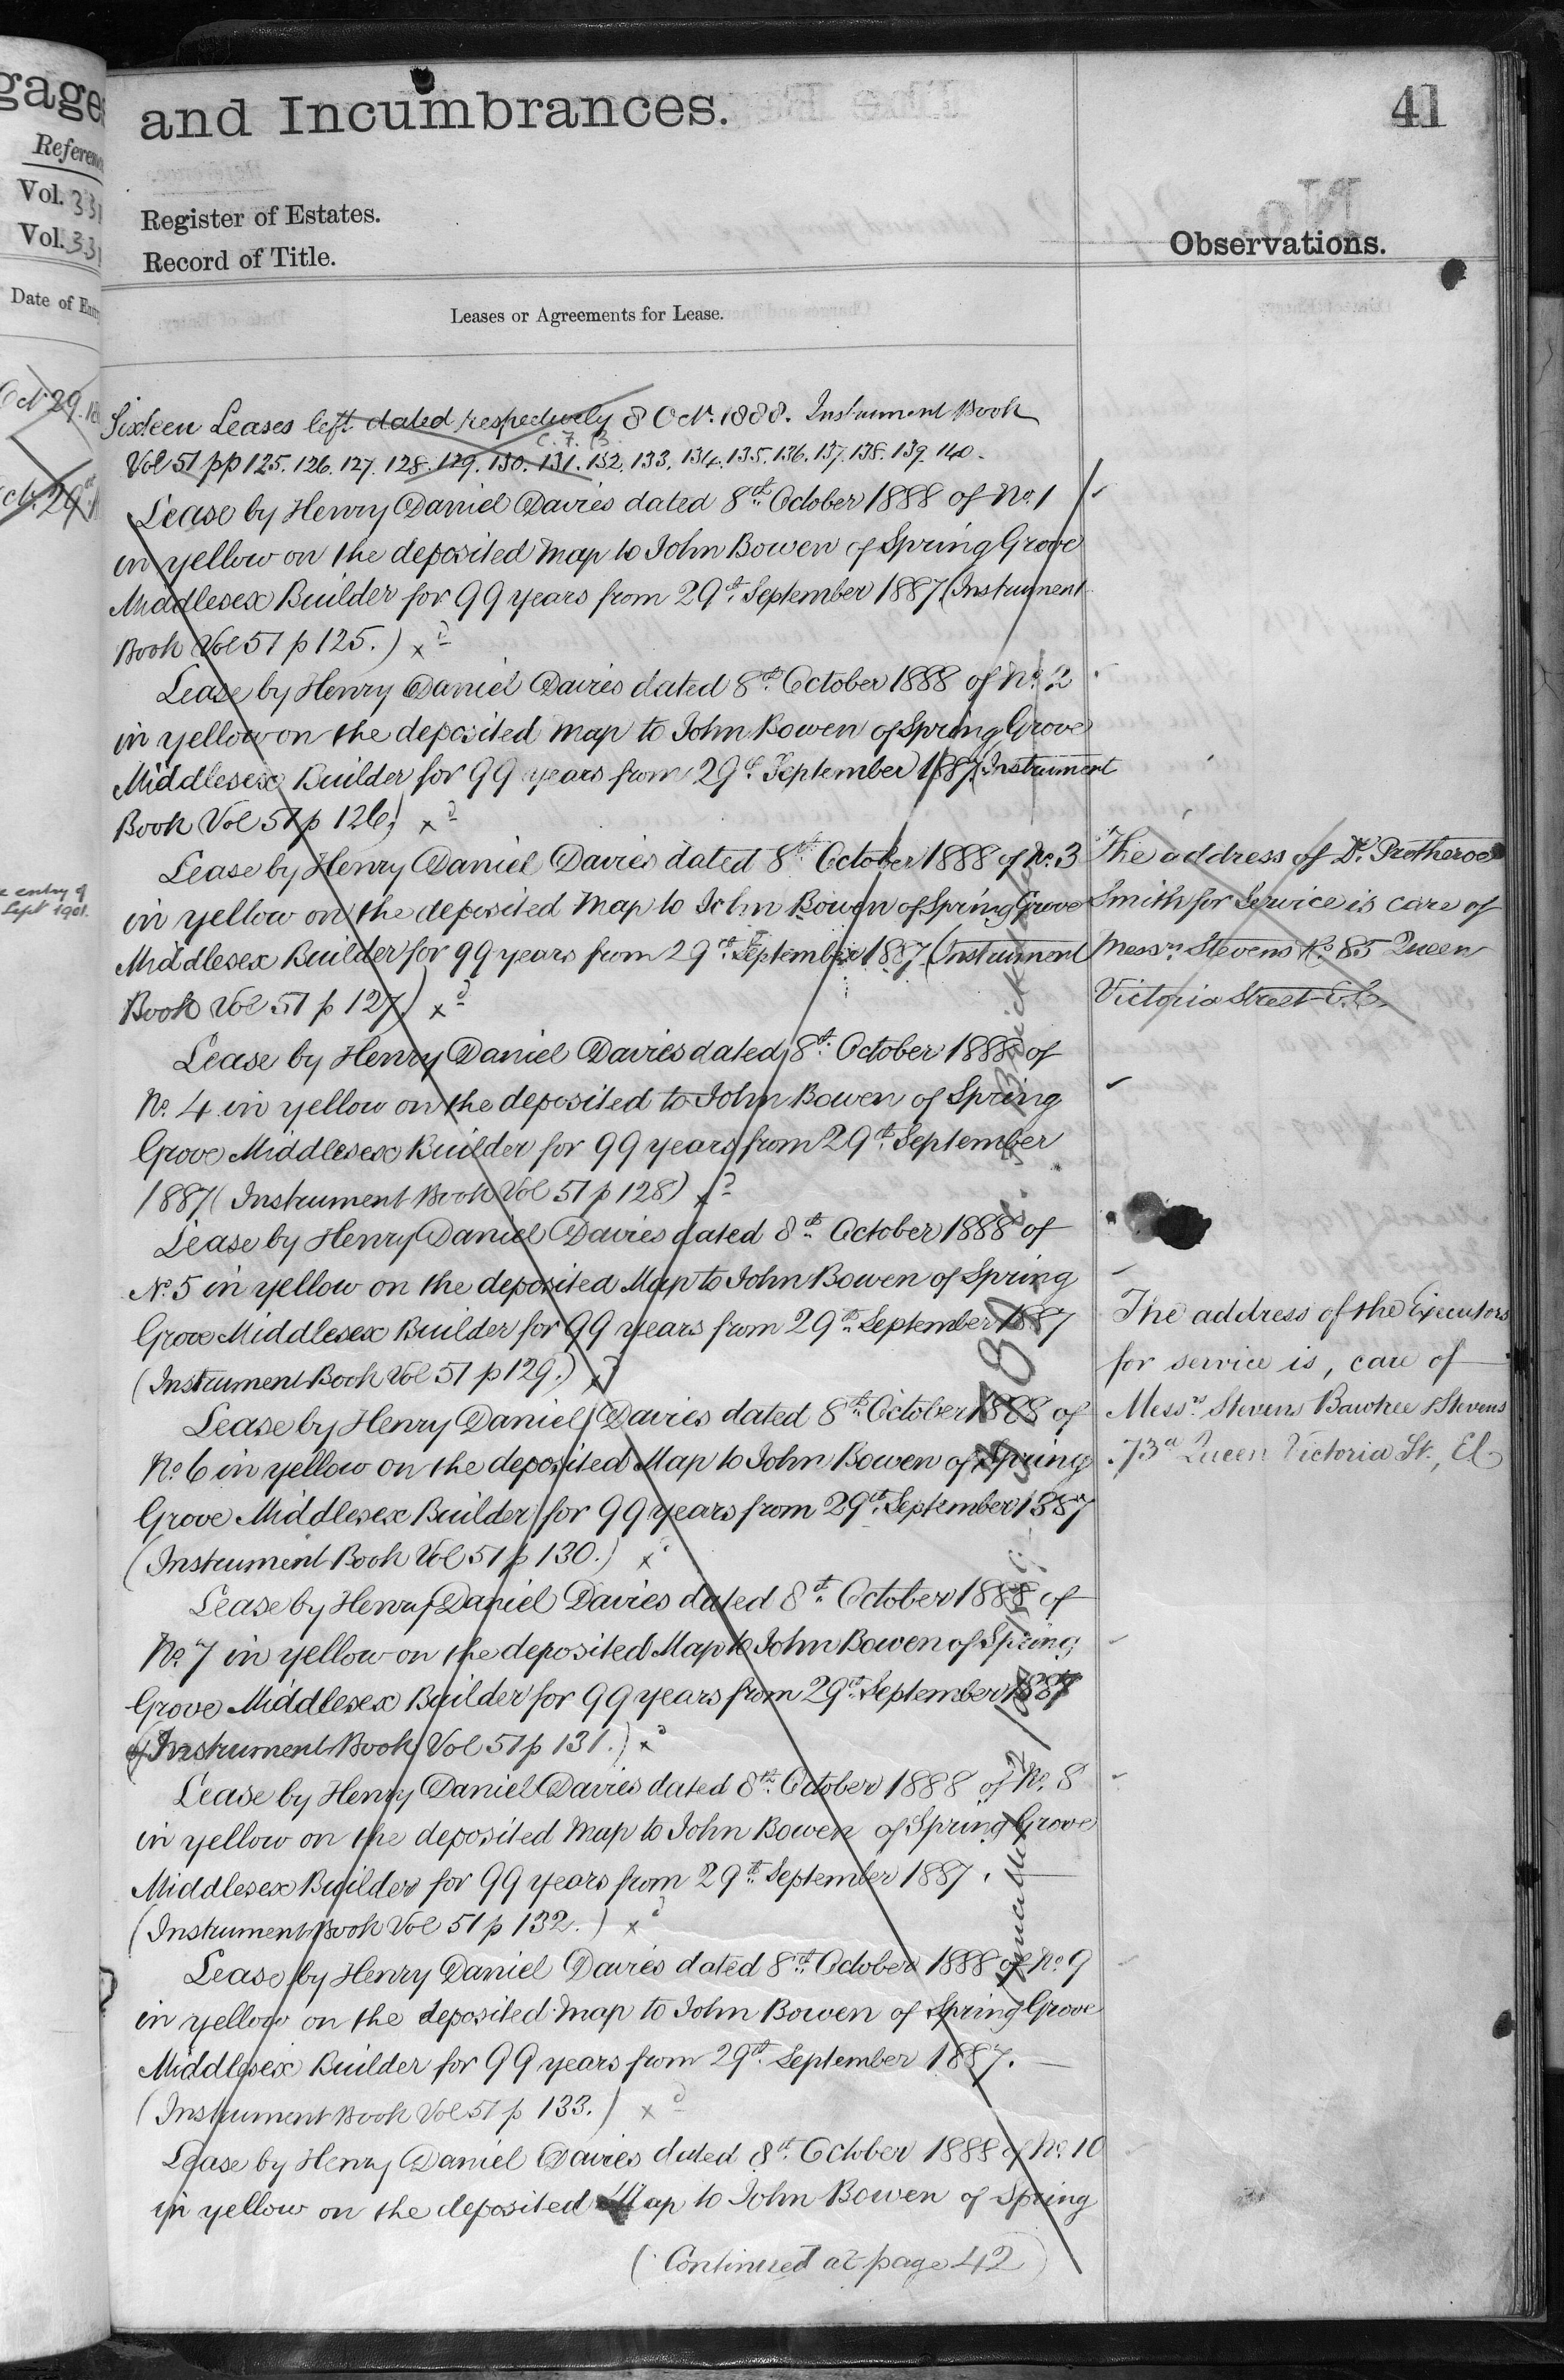 gage
Reference
Vol. 331
Vol. 331
Date of Entry
Oct 29. 188
Oct. 29th
entry of
Sept 1901.
and Incumbrances.
41
Register of Estates.
Record of Title.
Observations.
Leases or Agreements for Lease.
Sixteen Leases left dated respectively 8 Oct. 1888. Instrument Book
Vol 51 pp 125. 126. 127. 128. 129. 130. 131. 132. 133. 134. 135. 136. 137. 138. 139. 140.
Lease by Henry Daniel Davies dated 8th October 1888 of No. 1
in yellow on the deposited Map to John Bowen of Spring Grove
Middlesex Builder for 99 years from 29th September 1887 (Instrument
Book Vol 51 p 125.) x
Lease by Henry Daniel Davies dated 8th October 1888 of No. 2
in yellow on the deposited Map to John Bowen of Spring Grove
Middlesex Builder for 99 years from 29th September 1887 (Instrument
Book Vol 51 p 126) x
Lease by Henry Daniel Davies dated 8th October 1888 of No. 3
in yellow on the deposited Map to John Bowen of Spring Grove
Middlesex Builder for 99 years from 29th September 1887 (Instrument
Book Vol 51 p 127) x
Lease by Henry Daniel Davies dated 8th October 1888 of
No. 4 in yellow on the deposited to John Bowen of Spring
Grove Middlesex Builder for 99 years from 29th September
1887 (Instrument Book Vol 51 p 128) x
Lease by Henry Daniel Davies dated 8th October 1888 of
No. 5 in yellow on the deposited Map to John Bowen of Spring
Grove Middlesex Builder for 99 years from 29th September 1887
(Instrument Book Vol 51 p 129.) x
Lease by Henry Daniel Davies dated 8th October 1888 of
No. 6 in yellow on the deposited Map to John Bowen of Spring
Grove Middlesex Builder for 99 years from 29th September 1887
(Instrument Book Vol 51 p 130.) x
Lease by Henry Daniel Davies dated 8th October 1888 of
No. 7 in yellow on the deposited Map to John Bowen of Spring
Grove Middlesex Builder for 99 years from 29th September 1887
(Instrument Book Vol 51 p 131.) x
Lease by Henry Daniel Davies dated 8th October 1888 of No. 8
in yellow on the deposited Map to John Bowen of Spring Grove
Middlesex Builder for 99 years from 29th September 1887.
(Instrument Book Vol 51 p 132.) x
Lease by Henry Daniel Davies dated 8th October 1888 of No. 9
in yellow on the deposited Map to John Bowen of Spring Grove
Middlesex Builder for 99 years from 29th September 1887.
(Instrument Book Vol 51 p 133.) x
Lease by Henry Daniel Davies dated 8th October 1888 of No. 10
in yellow on the deposited Map to John Bowen of Spring
(Continued at page 42)
The address of Dr. Protheroe
Smith for Service is care of
Messrs. Stevens & Co 85 Queen
Victoria Street E.C.
The address of the Executors
for service is, care of
Messrs Stevens Bawtree & Stevens
73a Queen Victoria St., EC